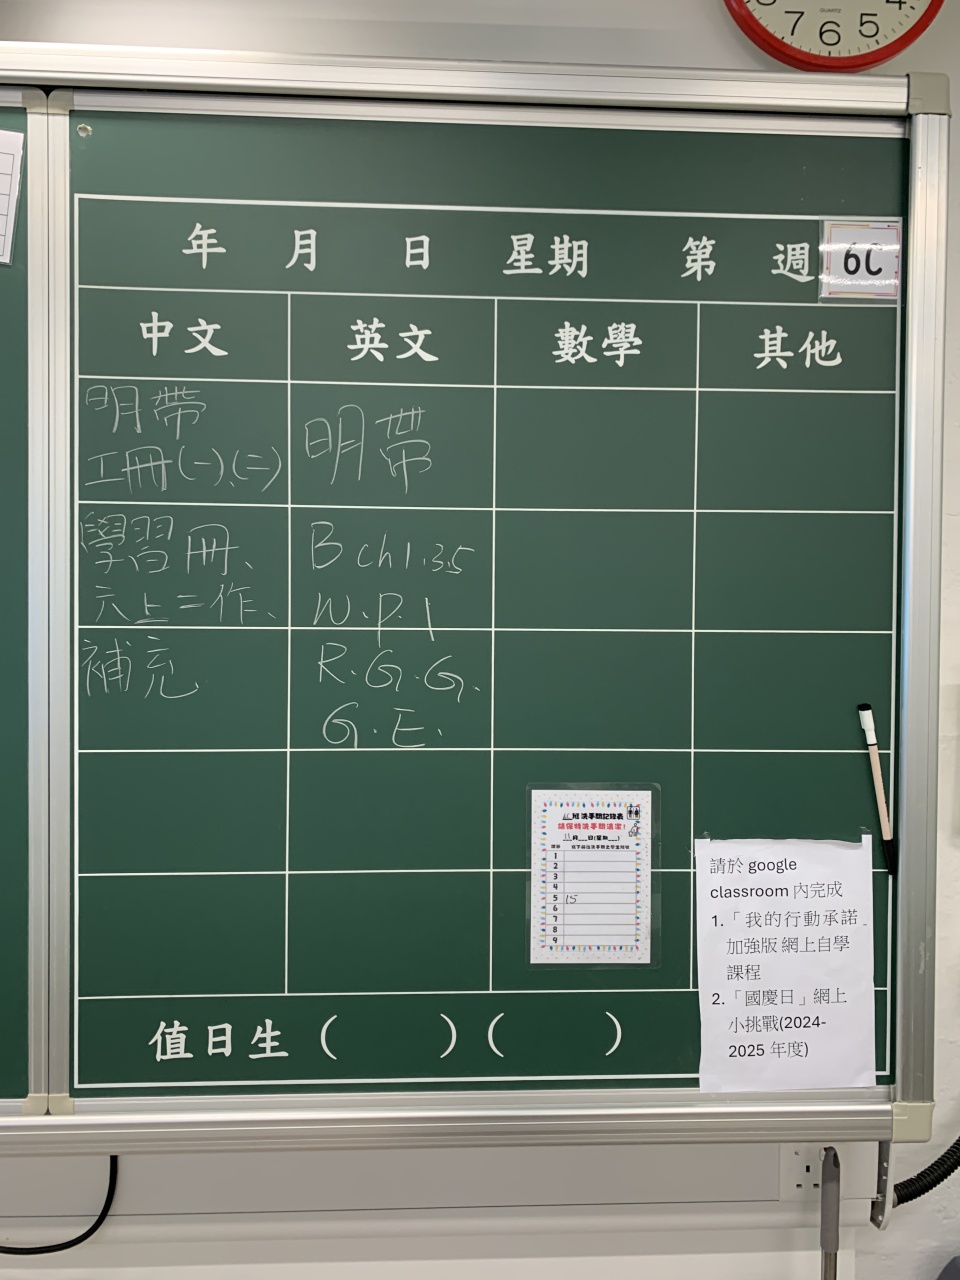 7 6 5 4
QUARTZ
年 月 日 星期 第 週 6C
中文 英文 數學 其他
明帶
工冊(一)、(二)
明帶
學習冊、
六上二作、
B ch 1.3.5
W.P.1
補充
R.G.G.
G.E.
6C班洗手間記錄表
請保持洗手間清潔!
11月__日(星期__)
1
2
3
4
5 15
6
7
8
9
請於 google
classroom 內完成
1.「我的行動承諾
加強版 網上自學
課程
2.「國慶日」網上
小挑戰(2024-
2025 年度)
值日生 ( ) ( )